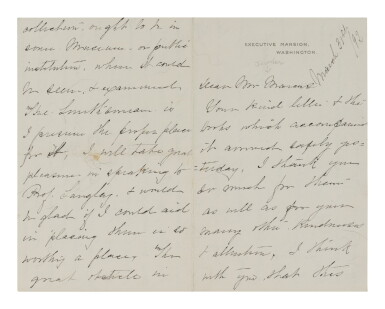 EXECUTIVE MANSION,
WASHINGTON.
March
Dear Mr
Your kind letter & the
books which accompanied
it arrived safely yes-
terday. I thank you
so much for them
as well as for your
many other kindnesses
& attention. I think
with you that this
collection ought to be in
some Museum, or public
institution, where it could
be seen, & examined.
The Smithsonian is
I presume the proper place
for it, I will take great
pleasure in speaking to
Prof. Langley, & would
be glad if I could aid
in placing them in so
worthy a place. The
great obstacle in